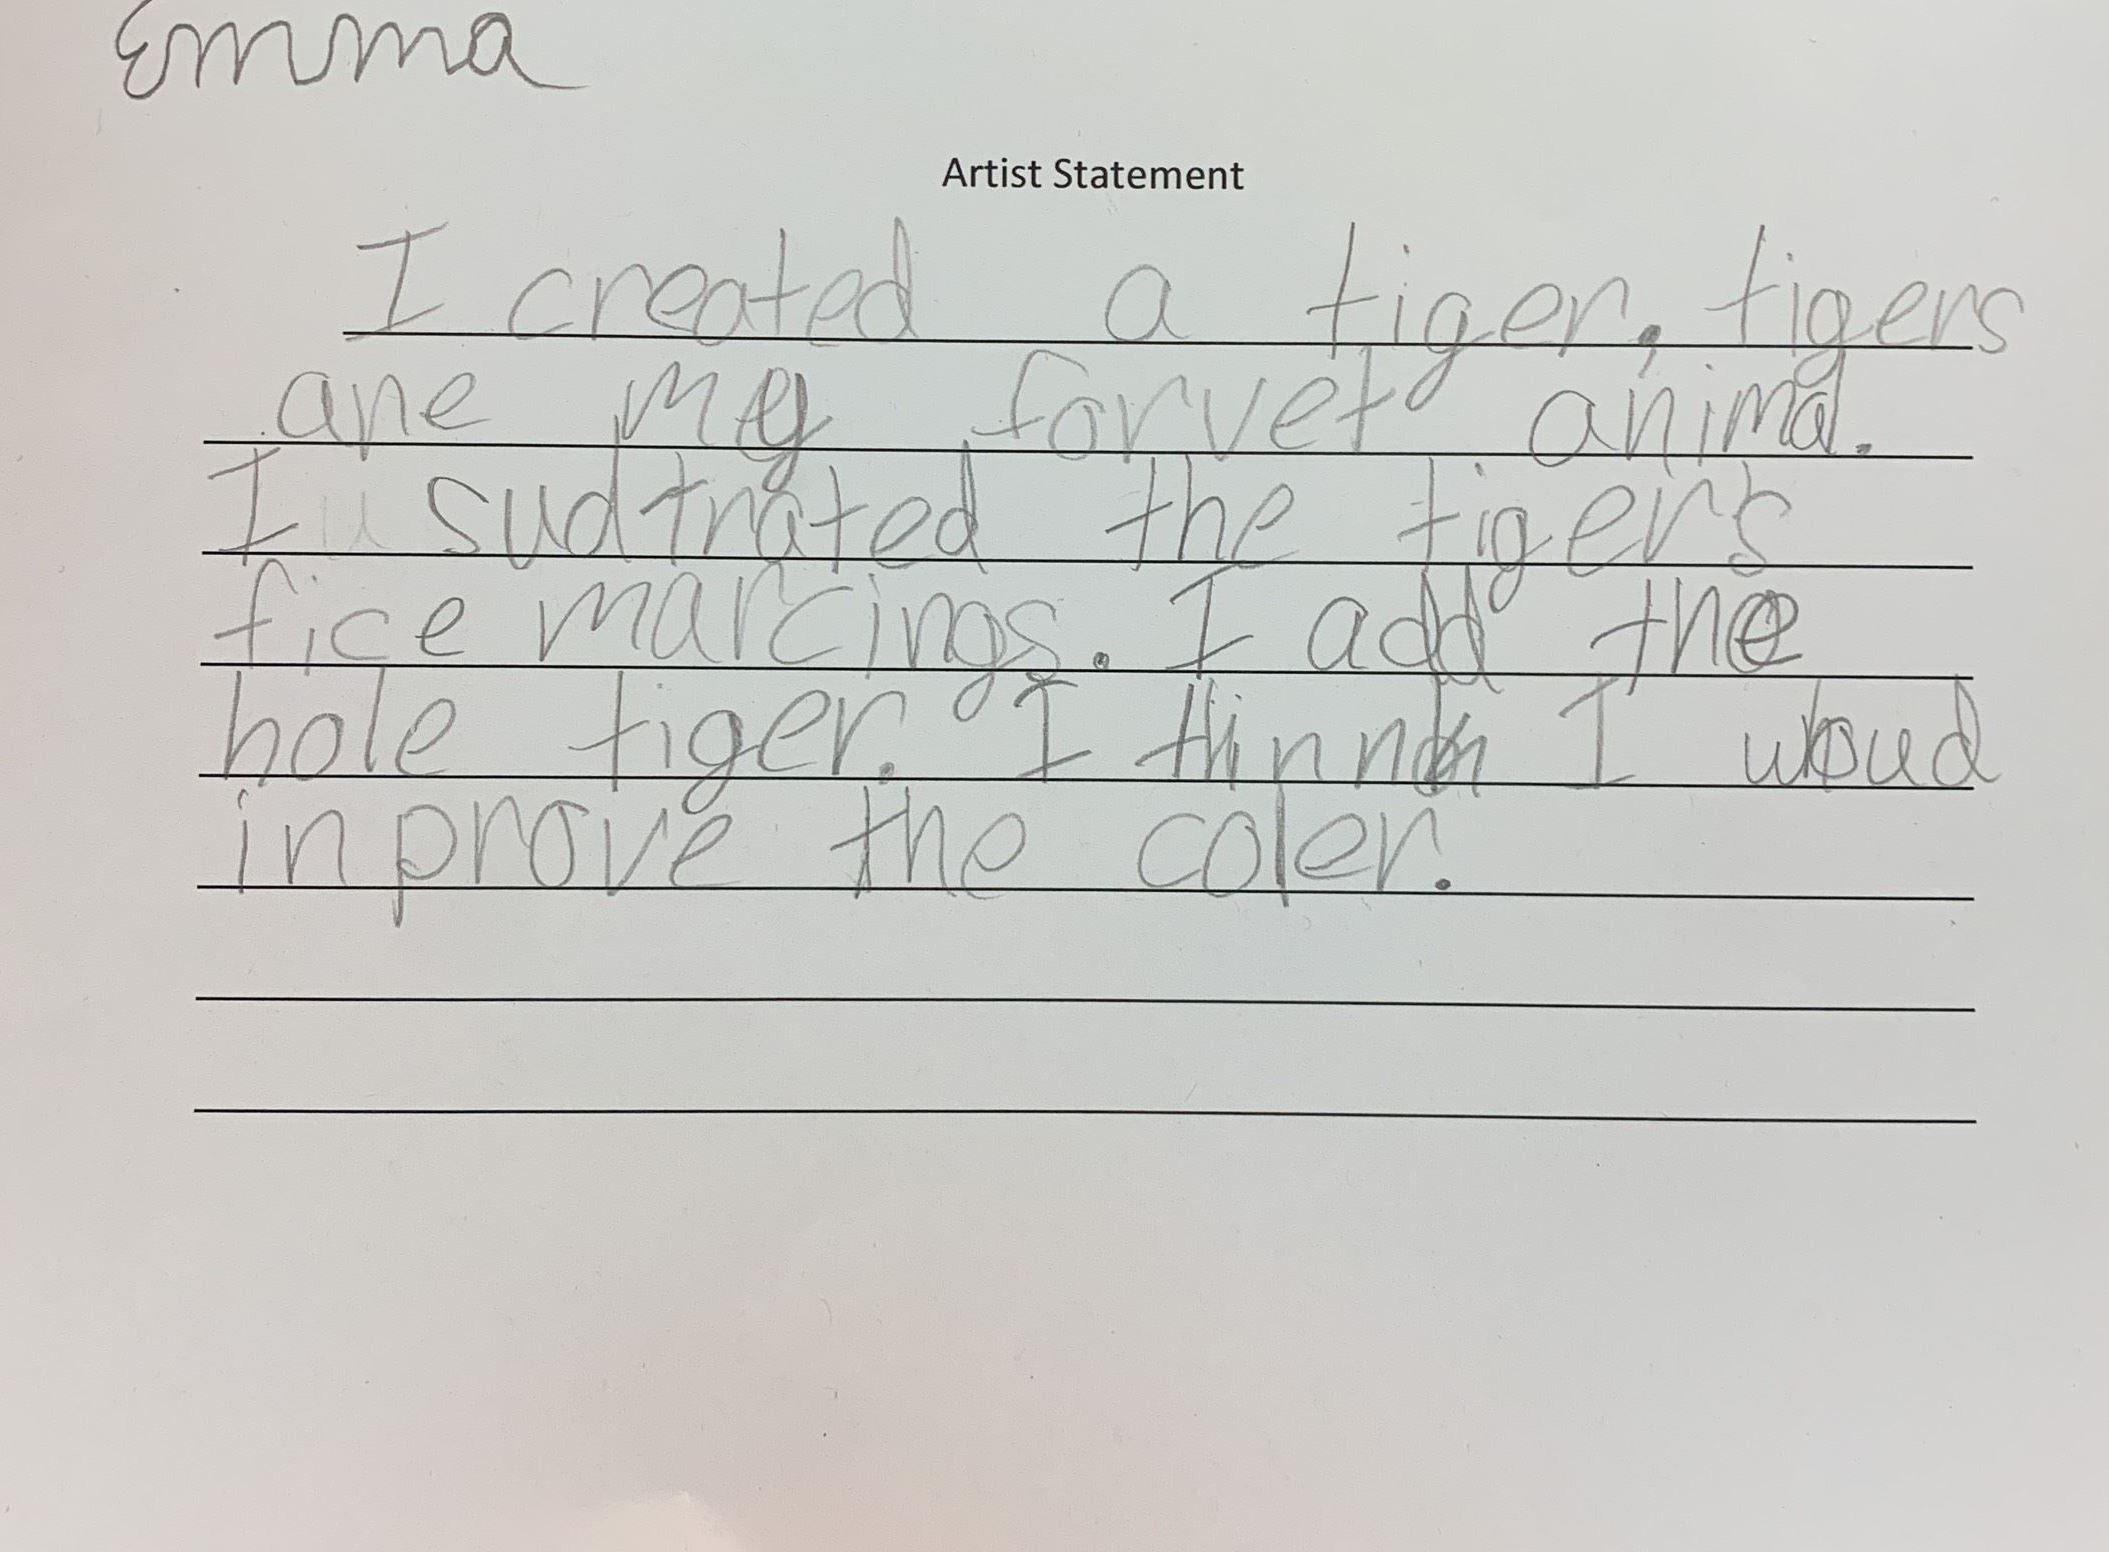 Emma
Artist Statement
I created a tiger, tigers
are my forvet animal.
I sudtrated the tiger's
fice marcings. I add the
hole tiger. I thinnk I woud
inprove the coler.